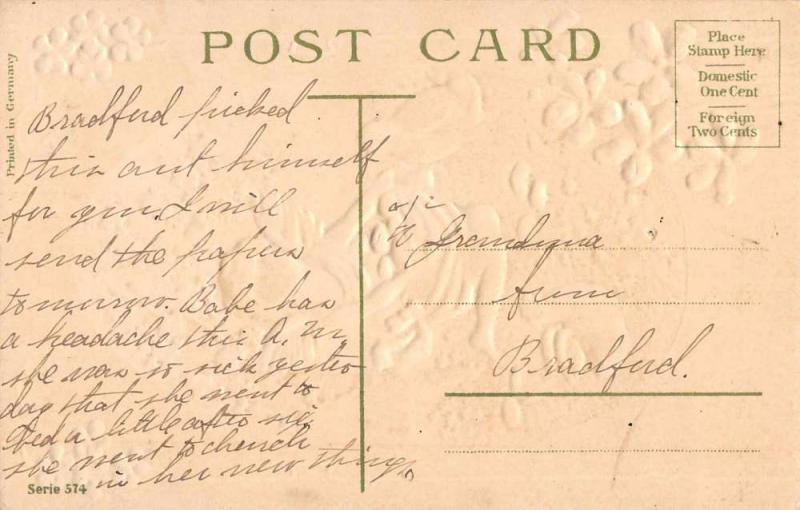 POST CARD
Printed in Germany
Place
Stamp Here
Domestic
One Cent
Foreign
Two Cents
Bradford picked
this out himself
for you. I will
send the papers
tomorrow. Babe has
a headache this A. M.
she was so sick yester
day that she went to
bed a little after six
she went to church
in her new things
To Grandma
from
Bradford.
Serie 574